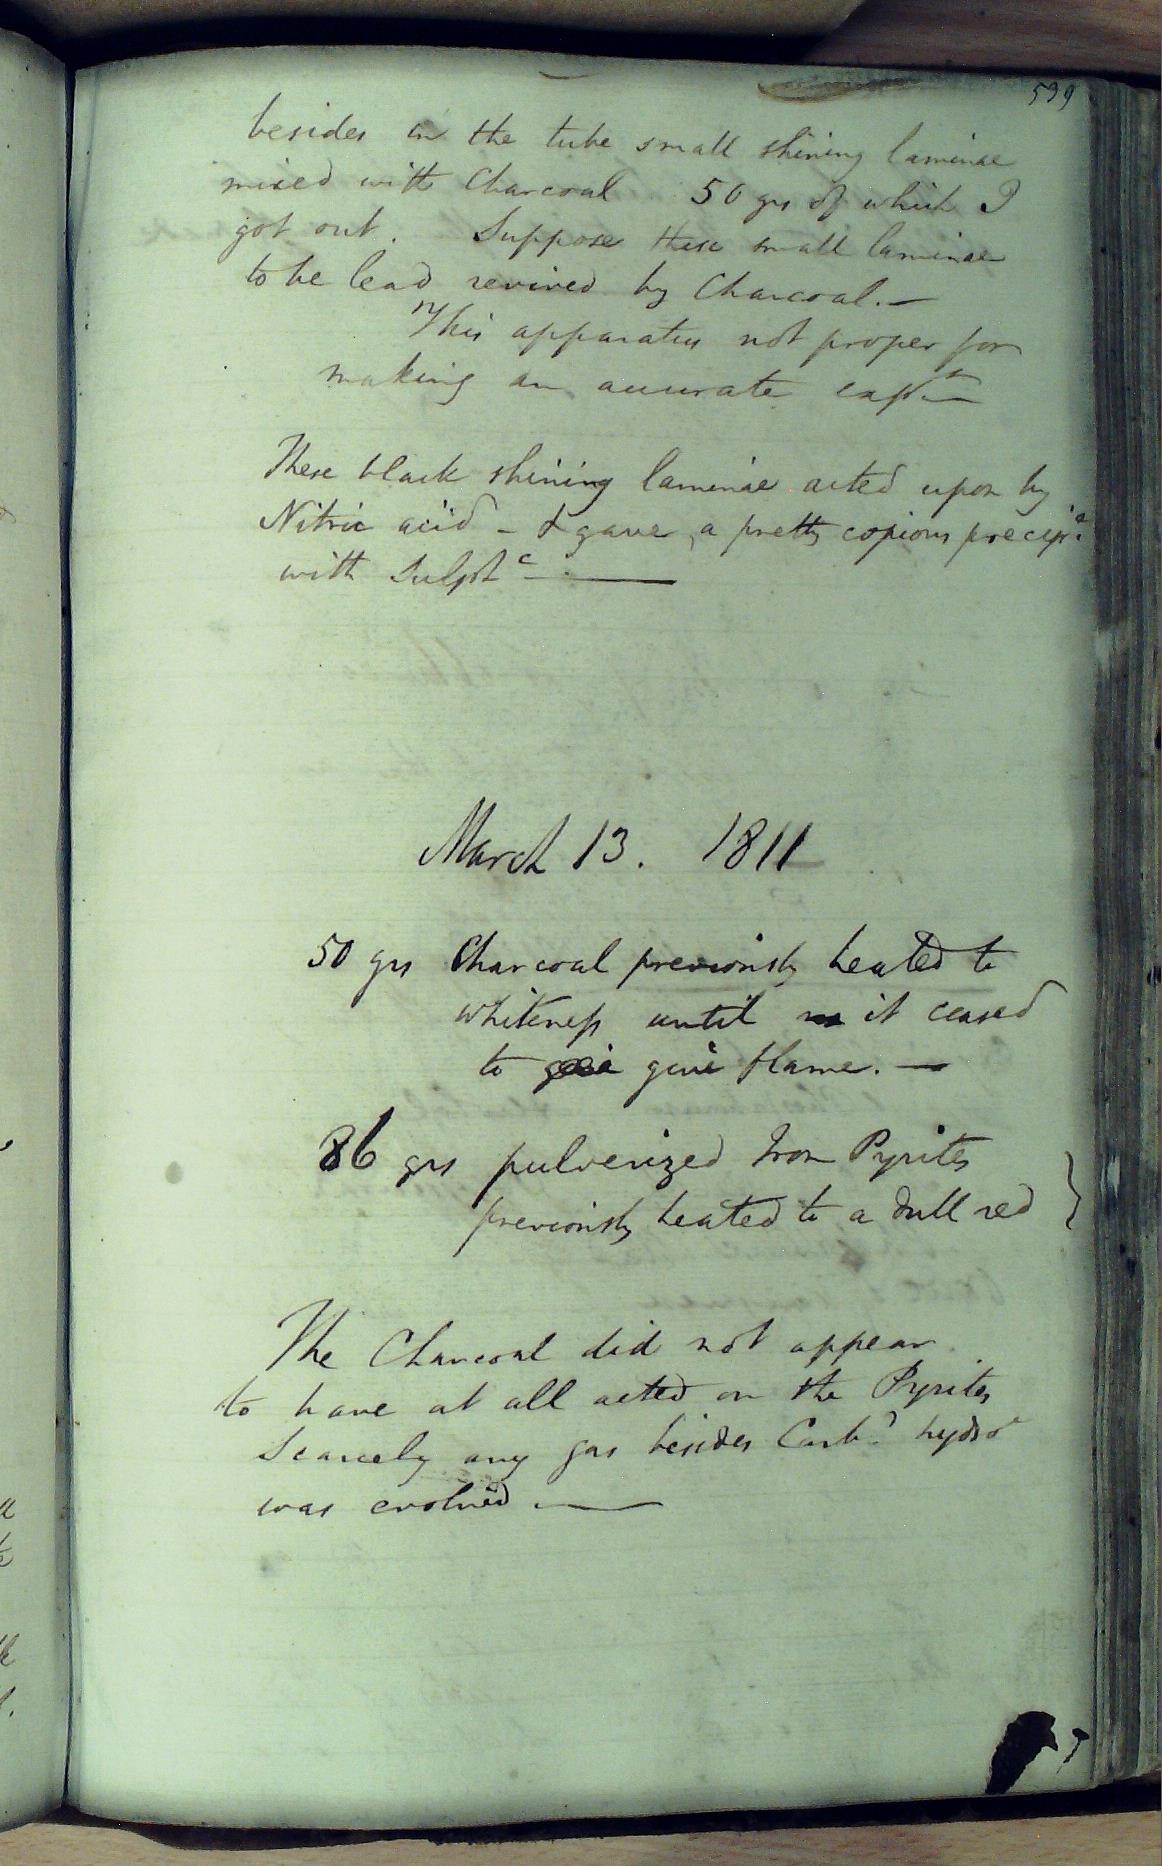 539
besides in the tube small shining laminae
mixed with Charcoal 50 grs of which I
got out. Suppose these small laminae
to be lead revived by Charcoal. —
This apparatus not proper for
making an accurate expt —
These black shining laminae acted upon by
Nitric acid – & gave a pretty copious precipe
with Sulphc ———
March 13. 1811
50 grs Charcoal previously heated to
whiteness until it ceased
to give flame. —
86 grs pulverized Iron Pyrites
previously heated to a dull red }
The Charcoal did not appear
to have at all acted on the Pyrites
Scarcely any gas besides Carbd hydro
was evolved ———